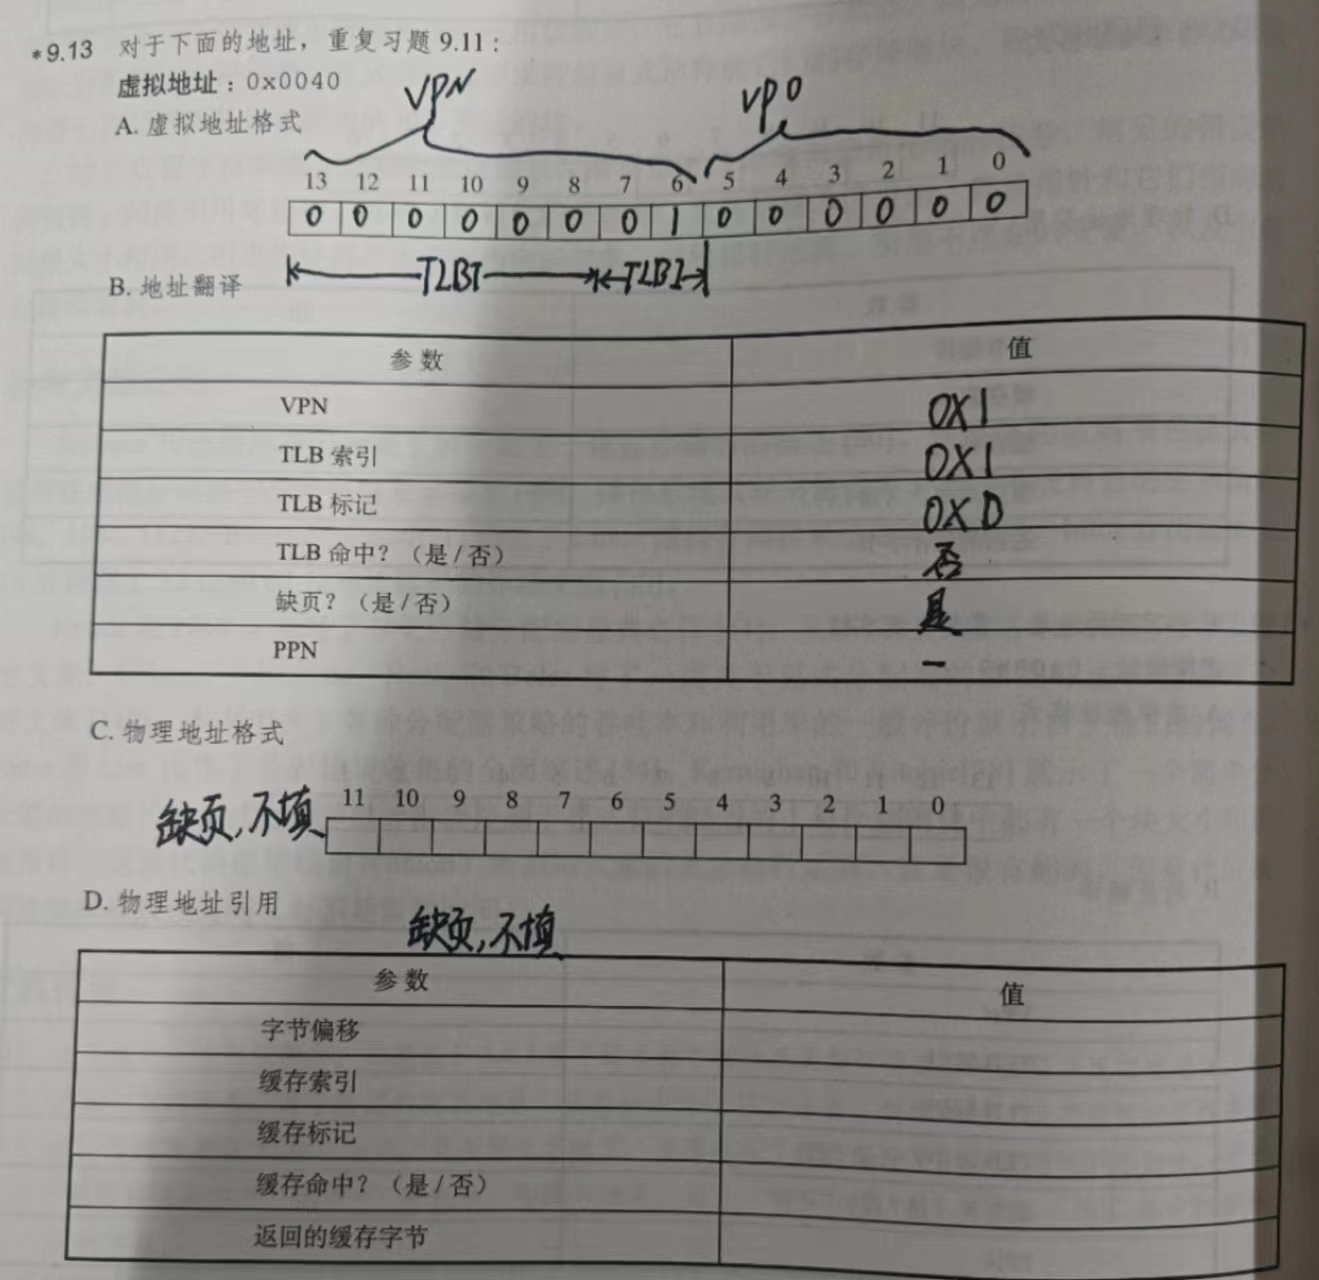 *9.13 对于下面的地址，重复习题 9.11：
虚拟地址：0x0040
VPN VPO
A. 虚拟地址格式
13 12 11 10 9 8 7 6 5 4 3 2 1 0
0 0 0 0 0 0 0 1 0 0 0 0 0 0
TLBT TLBI
B. 地址翻译
参数 值
VPN 0X1
TLB 索引 0X1
TLB 标记 0X0
TLB 命中？（是/否） 否
缺页？（是/否） 是
PPN —
C. 物理地址格式
11 10 9 8 7 6 5 4 3 2 1 0
缺页,不填
D. 物理地址引用
缺页,不填
参数 值
字节偏移
缓存索引
缓存标记
缓存命中？（是/否）
返回的缓存字节